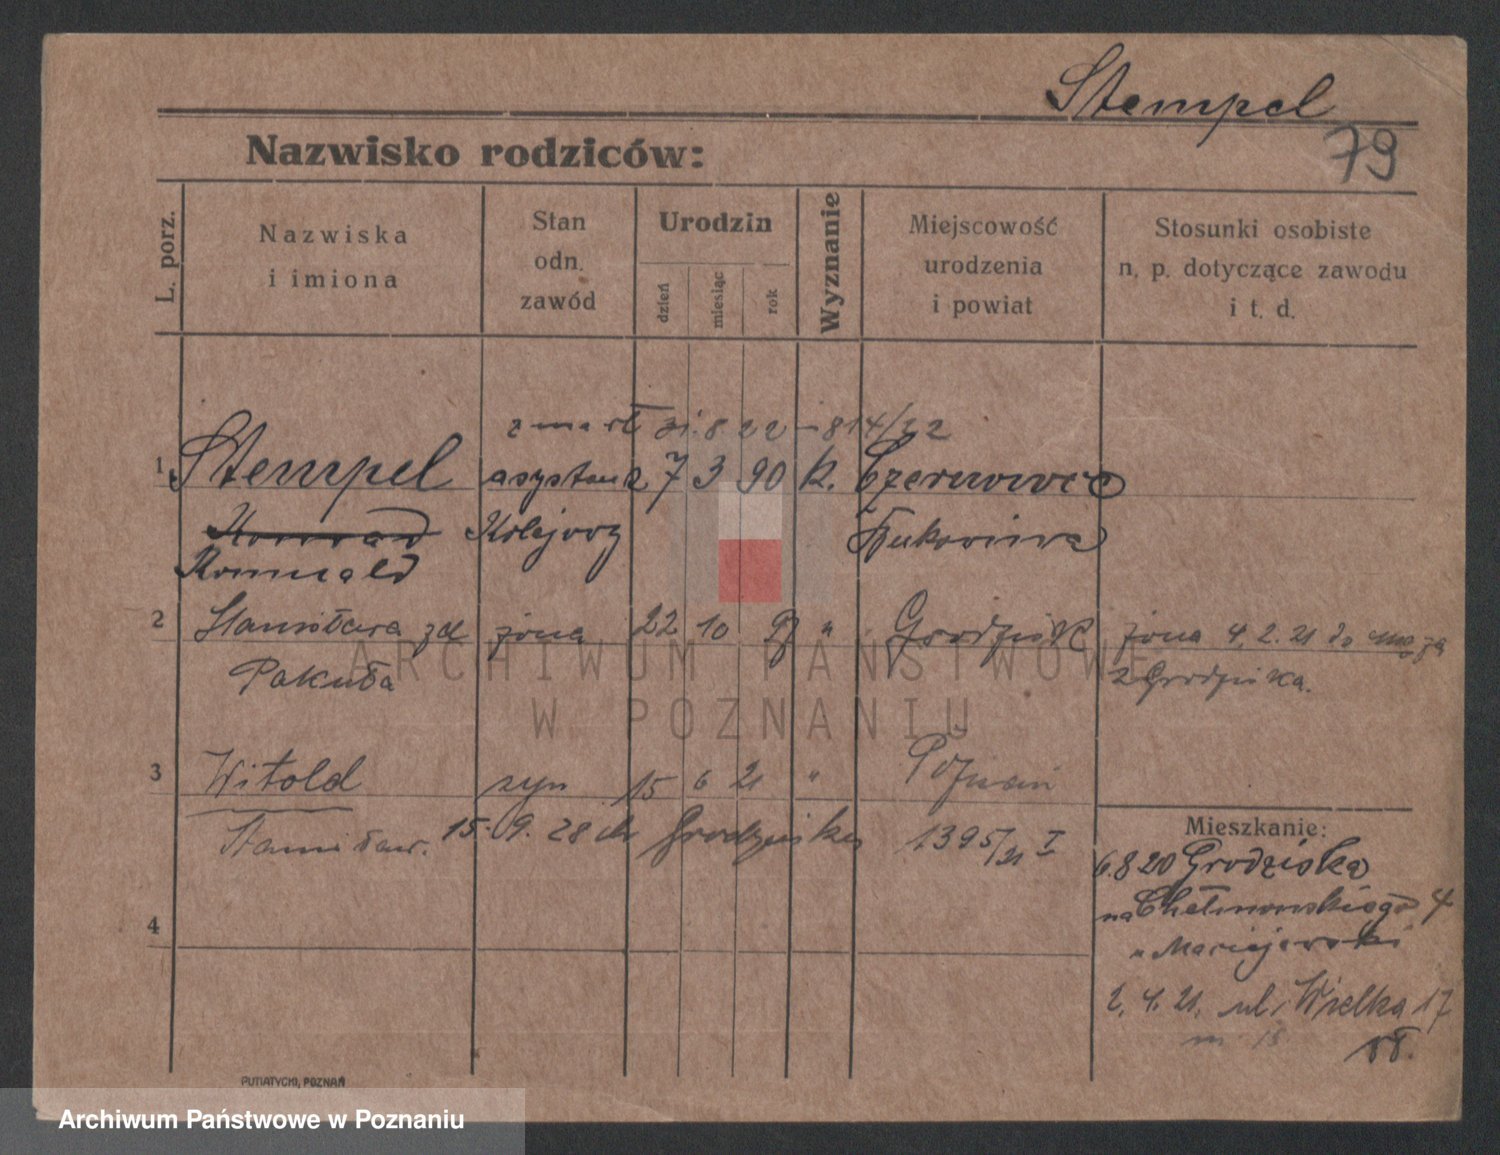 Stempel
79
Nazwisko rodziców:
L. porz.
Nazwiska
i imiona
Stan
odn.
zawód
Urodzin
dzień
miesiąc
rok
Wyznanie
Miejscowość
urodzenia
i powiat
Stosunki osobiste
n. p. dotyczące zawodu
i t. d.
zmarł 31.8.22 – 814/22
1 Stempel asystent 7 3 90 k. Czernowce
Konrad Kolejowy Bukowina
Romuald
2 Stanisława zd żona 22 10 97 " Grodzisk żona 4.2.21 do męża
Pakuła z Grodziska.
ARCHIWUM PAŃSTWOWE
W POZNANIU
3 Witold syn 15 6 21 " Poznań
Stanisław. 15.9.28 do Grodziska 1395/21 I
4
Mieszkanie:
6.8 20 Grodziska
na Chełmońskiego 4
u Maciejewski
2.4.21. ul. Wielka 17
m. 18
PUTIATYCKI, POZNAŃ
Archiwum Państwowe w Poznaniu